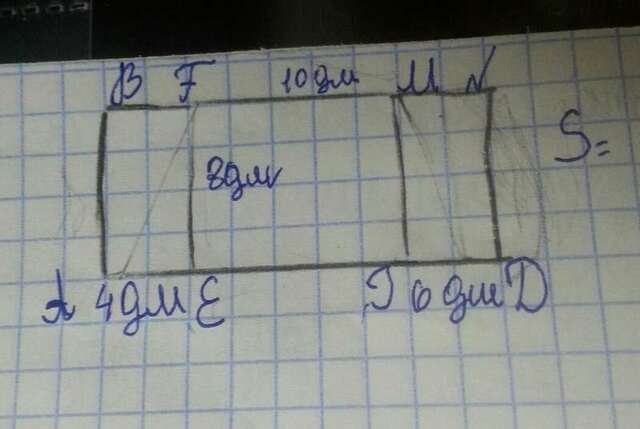 B F 10дм M N
8дм
S=
A 4дм E J 6дм D